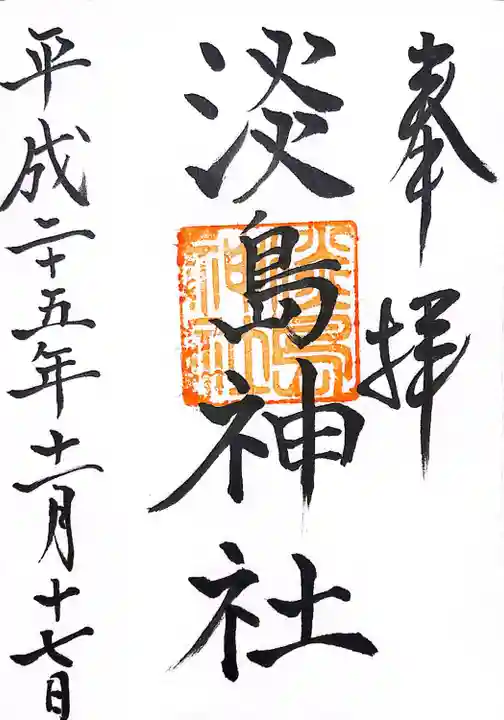 奉拝
淡島神社
淡島神社
平成二十五年十一月十七日